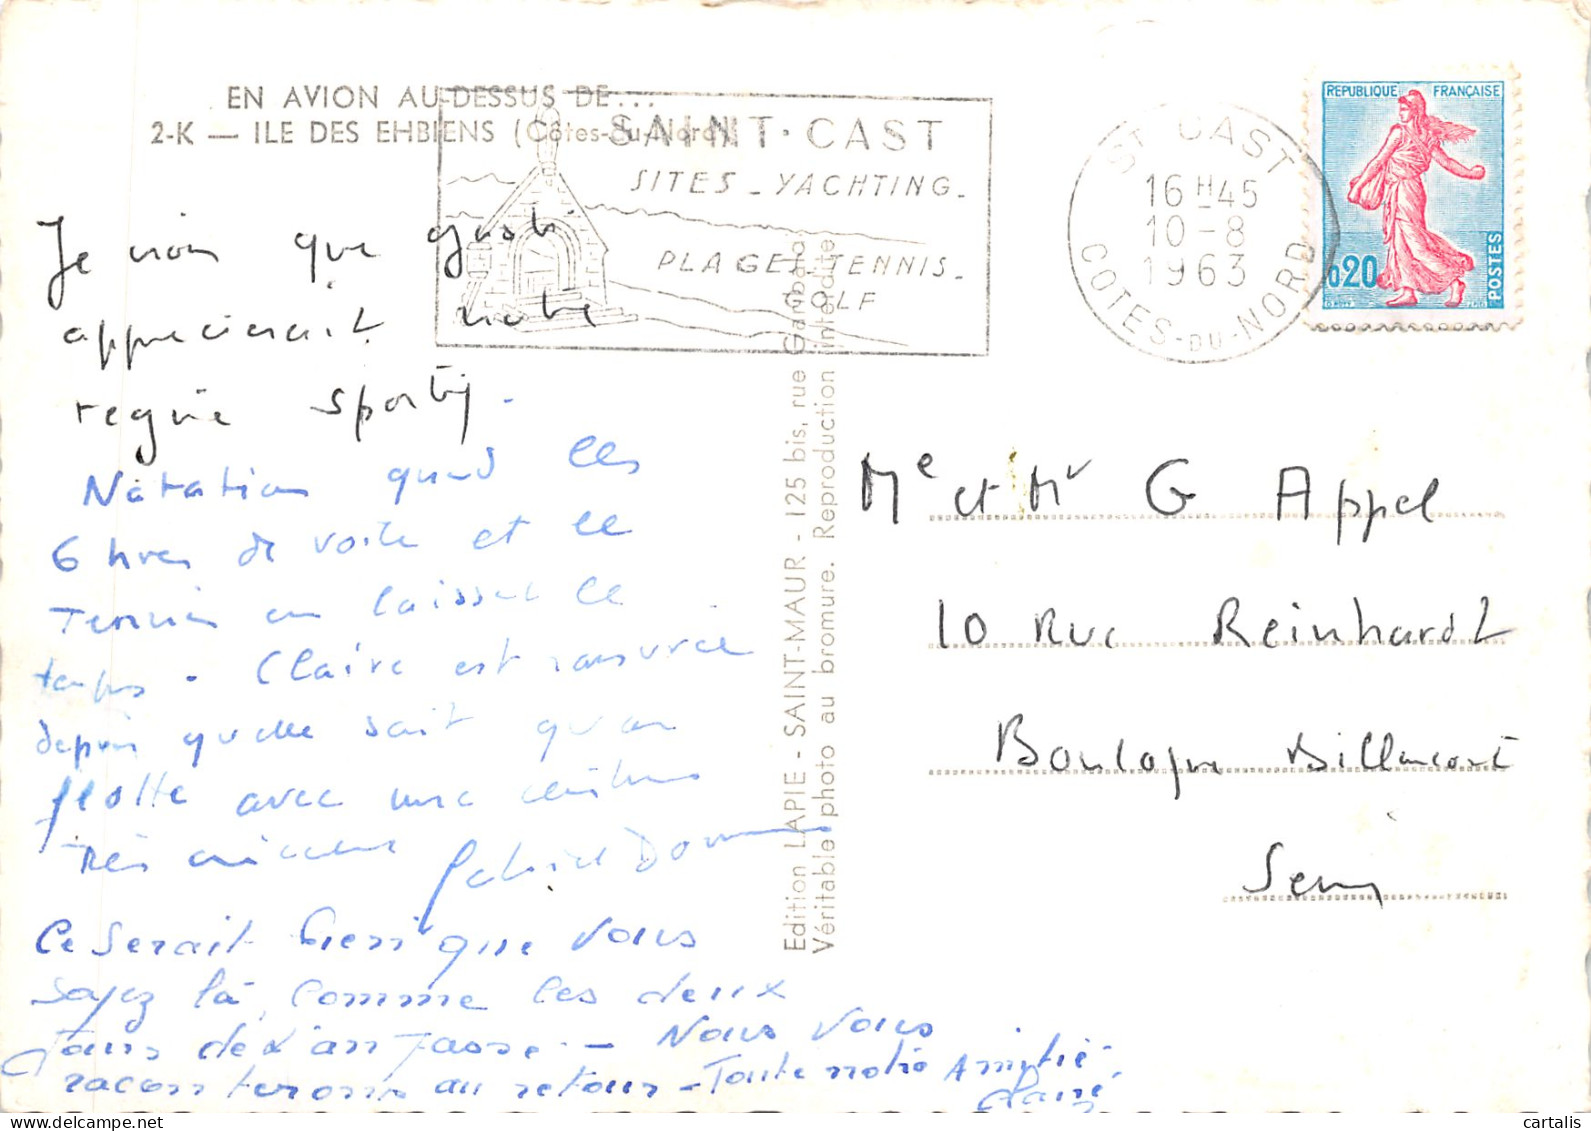 EN AVION AU-DESSUS DE...
2-K — ILE DES EHBIENS (Côtes-du-Nord)
SAINT·CAST
SITES - YACHTING -
PLAGE - TENNIS -
OLF
ST CAST
16 H 45
10 - 8
1963
COTES-DU-NORD
REPUBLIQUE FRANÇAISE
0,20
POSTES
Je crois que
apprecierait notre
regime sportif.
Natation quand les
6 hres de voile et le
Tennis en laissent le
temps. Claire est rassurée
depuis qu'elle sait qu'on
flotte avec une ceinture
Très
Ce serait bien que vous
soyez là, comme les deux
jours de l'an passé. — Nous vous
raconterons au retour - Toute notre Amitié.
Claire
Edition LAPIE - SAINT-MAUR - 125 bis, rue Gambetta
Véritable photo au bromure. Reproduction interdite
Me et Mr G Appel
10 Rue Reinhardt
Boulogne Billancourt
Seine
cartalis.com